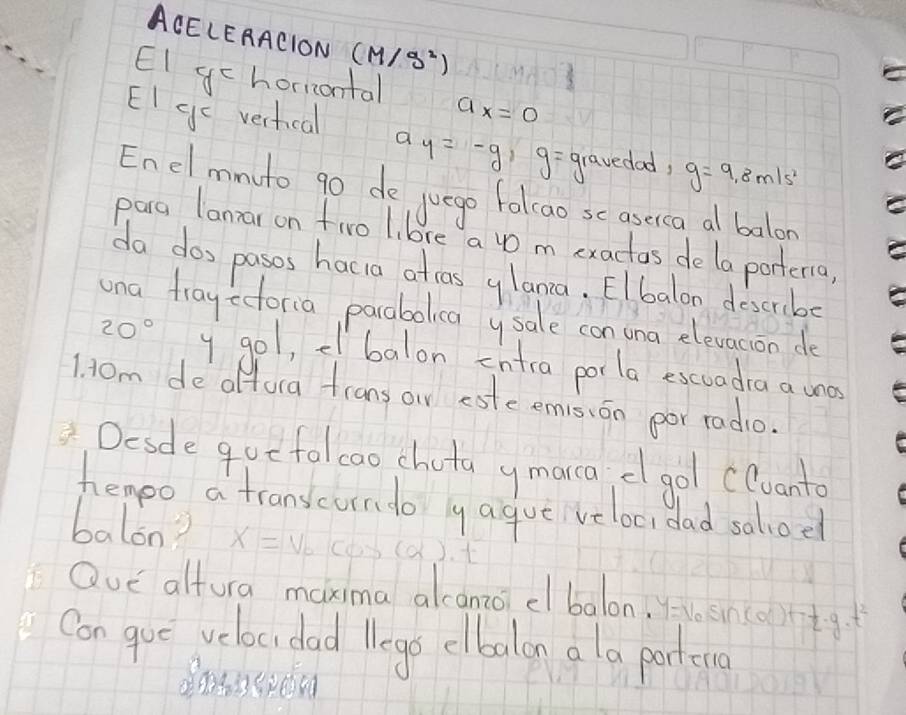 ACELERACION (M/S²)
El ge horizontal ax = 0
El ge vertical ay = -g, g = gravedad, g = 9,8 m/s²
En el minuto 90 de juego falcao se aserca al balon
para lanzar on tiro libre a 40 m exactas de la porteria,
da dos pasos hacia atras y lanza. El balon describe
una trayectoria parabolica y sale con una elevación de
20° y gol, el balon entra por la escuadra a unos
1.70m de altura trans este emisión por radio.
Desde que falcao chuta y marca el gol ¿Cuanto
tiempo a transcurrido y a que velocidad salio el
balón? x = V₀ cos(α).t
Qué altura maxima alcanzó el balon. y = V₀ sin(α)t - ½.g.t²
Con que velocidad llegó el balon a la porteria